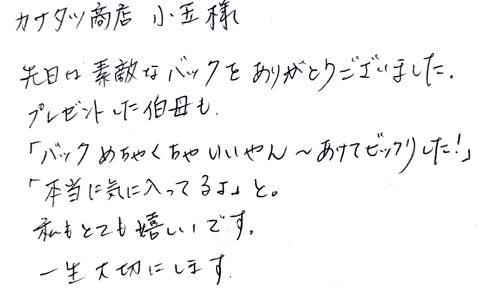 カナタツ商店 小玉様
先日は素敵なバックをありがとうございました.
プレゼントした伯母も.
「バックめちゃくちゃいいやん〜あけてビックリした!」
「本当に気に入ってるよ」と。
私もとても嬉しいです.
一生大切にします.